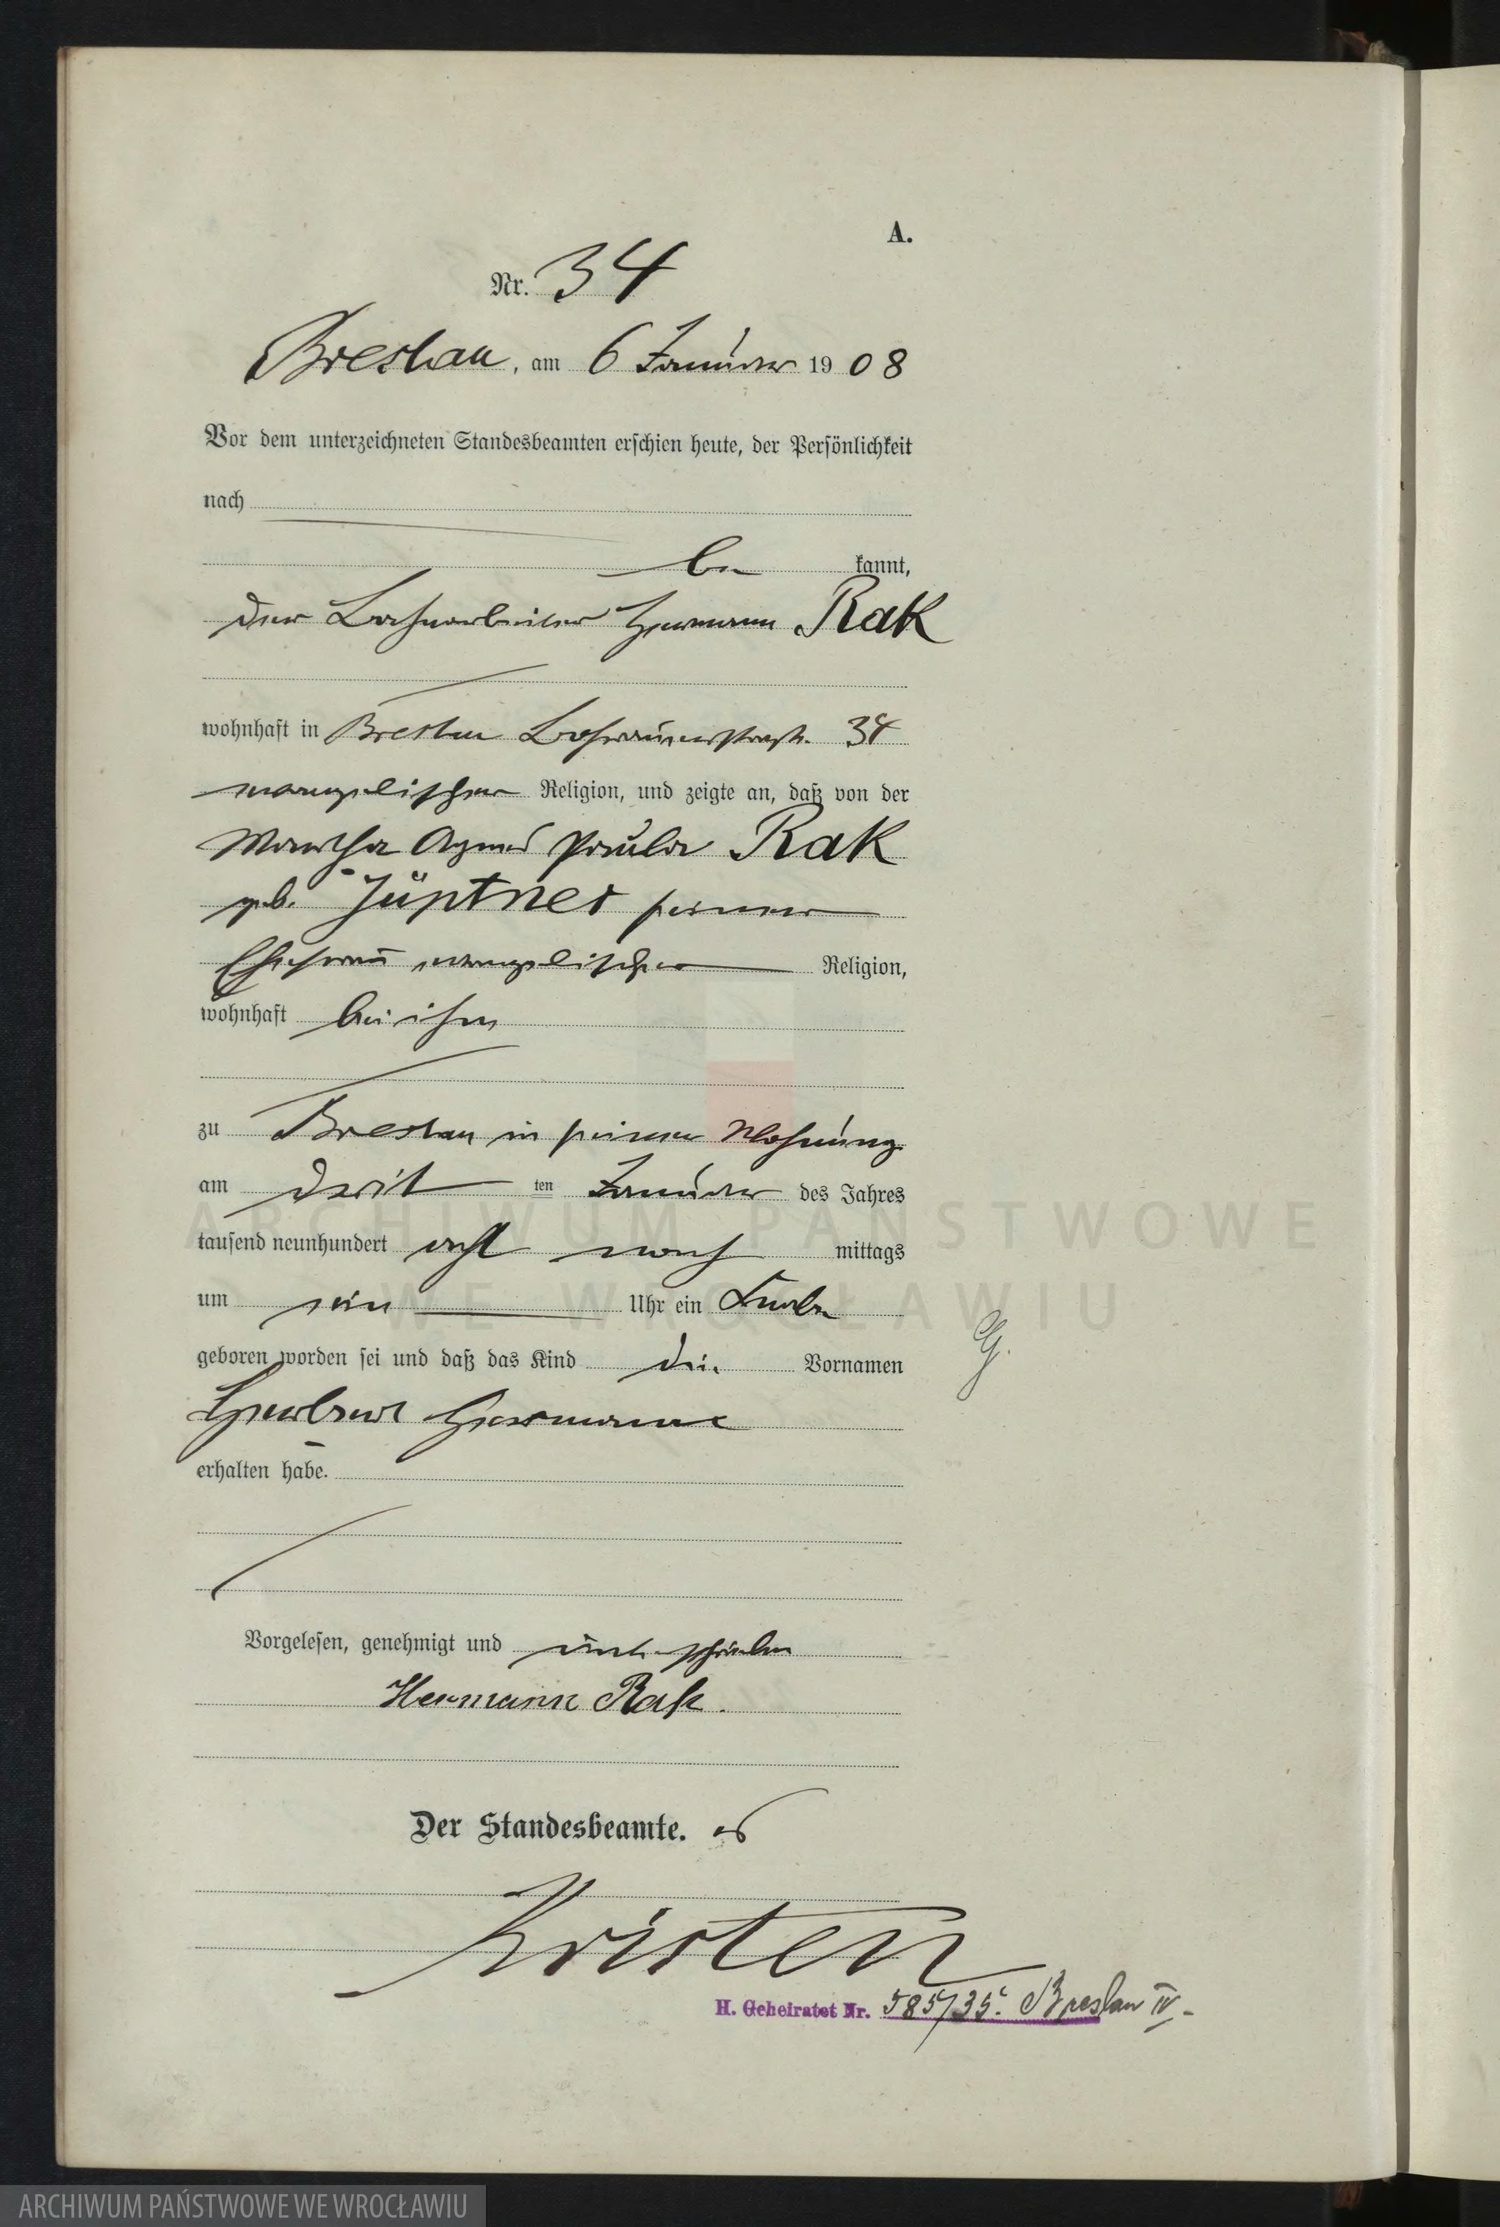 A.
Nr. 34
Breslau, am 6 Januar 1908
Vor dem unterzeichneten Standesbeamten erschien heute, der Persönlichkeit
nach
be kannt,
der Bahnarbeiter Hermann Rak
wohnhaft in Breslau Lohestraße 34
evangelischer Religion, und zeigte an, daß von der
Martha Agnes Paula Rak
geb. Jüptner seiner
Ehefrau evangelischer Religion,
wohnhaft bei ihm
zu Breslau in seiner Wohnung
am dritten Januar des Jahres
tausend neunhundert acht nach mittags
um ein Uhr ein Knabe
geboren worden sei und daß das Kind die Vornamen
Herbert Hermann
erhalten habe.
G.
Vorgelesen, genehmigt und unterschrieben
Hermann Rak.
Der Standesbeamte.
Kristen
H. Geheiratet Nr. 585/35. Breslau IV
ARCHIWUM PAŃSTWOWE
WE WROCŁAWIU
ARCHIWUM PAŃSTWOWE WE WROCŁAWIU